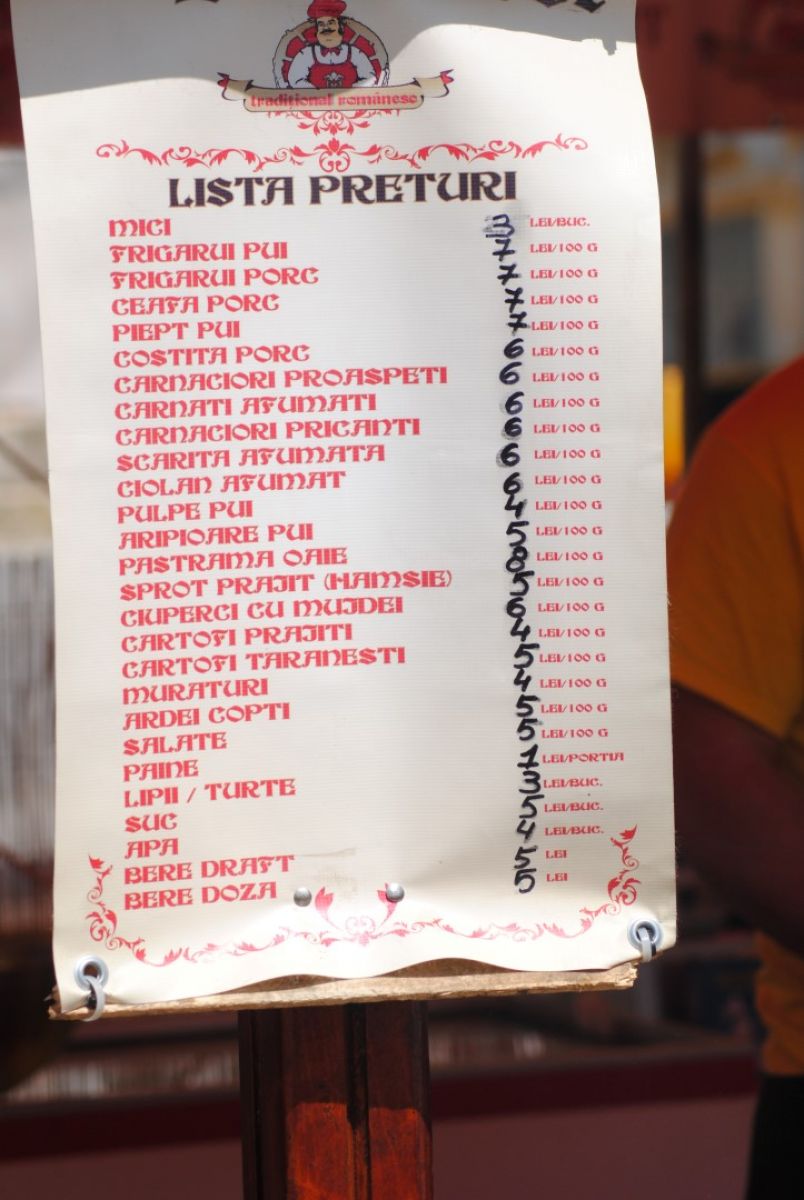 tradițional românesc
LISTA PRETURI
MICI 3 LEI/BUC.
FRIGARUI PUI 7 LEI/100 G
FRIGARUI PORC 7 LEI/100 G
CEAFA PORC 7 LEI/100 G
PIEPT PUI 7 LEI/100 G
COSTITA PORC 6 LEI/100 G
CARNACIORI PROASPETI 6 LEI/100 G
CARNATI AFUMATI 6 LEI/100 G
CARNACIORI PRICANTI 6 LEI/100 G
SCARITA AFUMATA 6 LEI/100 G
CIOLAN AFUMAT 6 LEI/100 G
PULPE PUI 4 LEI/100 G
ARIPIOARE PUI 5 LEI/100 G
PASTRAMA OAIE 8 LEI/100 G
SPROT PRAJIT (HAMSIE) 5 LEI/100 G
CIUPERCI CU MUJDEI 6 LEI/100 G
CARTOFI PRAJITI 4 LEI/100 G
CARTOFI TARANESTI 5 LEI/100 G
MURATURI 4 LEI/100 G
ARDEI COPTI 5 LEI/100 G
SALATE 5 LEI/100 G
PAINE 1 LEI/PORTIA
LIPII / TURTE 3 LEI/BUC.
SUC 5 LEI/BUC.
APA 4 LEI/BUC.
BERE DRAFT 5 LEI
BERE DOZA 5 LEI